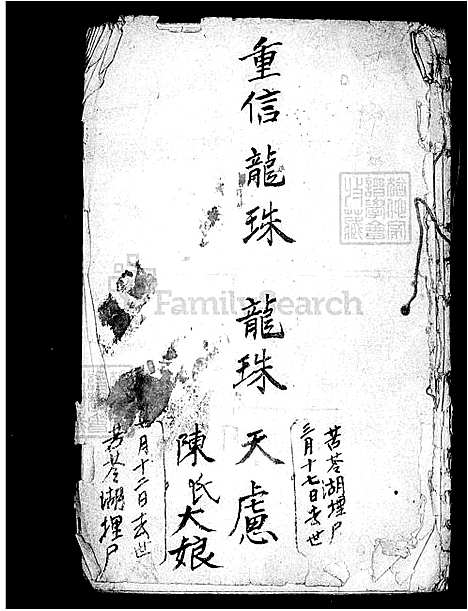 苦苓湖埋尸
三月十七日去世
重信 龍珠 龍珠 天慮
陳氏大娘
月十二日去世
苦苓湖埋尸
FamilySearch